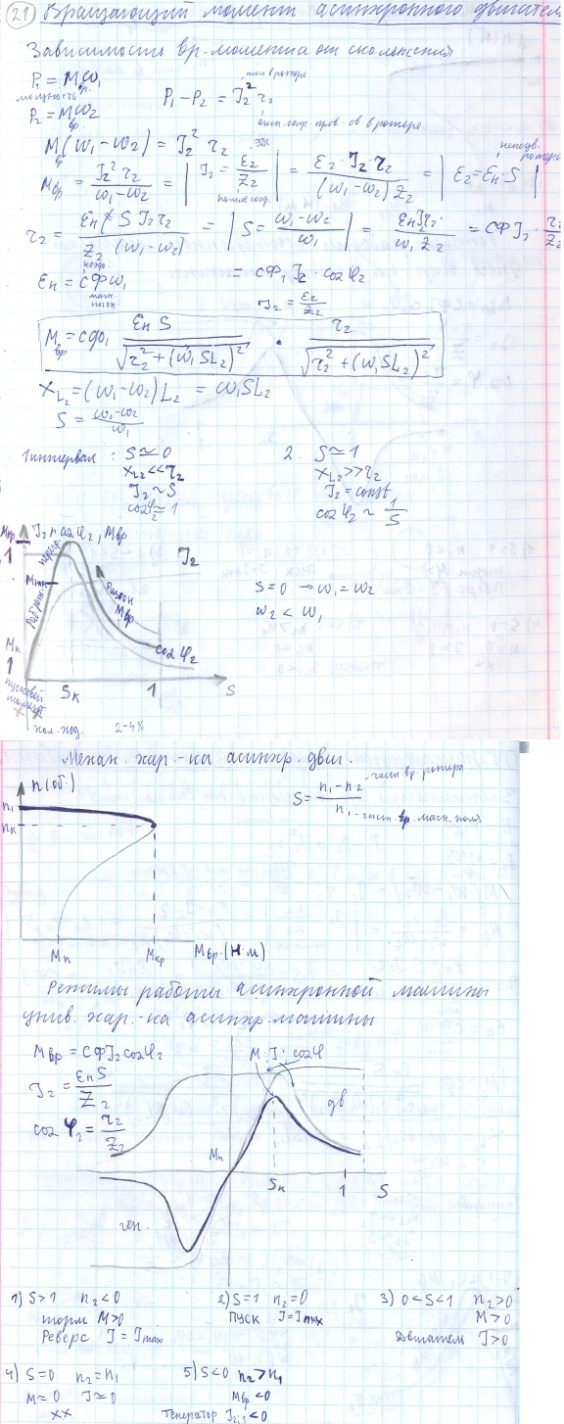 21 Вращающий момент асинхронного двигателя
Зависимость вр. момента от скольжения
P₁ = Mω₁
мощность вр.
P₂ = Mω₂
вр
P₁ - P₂ = J₂² r₂
ток в роторе
M(ω₁ - ω₂) = J₂² r₂
вр
Mвр = J₂² r₂ / (ω₁ - ω₂) = | J₂ = ε₂ / Z₂ | = ε₂ · J₂ r₂ / (ω₁ - ω₂) Z₂ = | ε₂ = Eн S |
ЭДС
полное сопр.
неподв. ротора
r₂ = Eн S J₂ r₂ / Z₂ (ω₁ - ω₂) = | S = (ω₁ - ω₂) / ω₁ | = Eн J₂ r₂ / ω₁ Z₂ = CФJ₂ · r₂ / Z₂
Eн = CФω₁
магн. поток
= CФ₁ J₂ · cos φ₂
J₂ = ε₂ / Z₂
Mвр = CФ₁ Eн S / √(r₂² + (ω₁SL₂)²) · r₂ / √(r₂² + (ω₁SL₂)²)
X_L₂ = (ω₁ - ω₂) L₂ = ω₁SL₂
S = (ω₁ - ω₂) / ω₁
1 интервал : S ≃ 0
X_L₂ << r₂
J₂ ~ S
cos φ₂ ≃ 1
2. S ≃ 1
X_L₂ >> r₂
J₂ = const
cos φ₂ ~ 1/S
Mкр
J₂, cos φ₂, Mвр
1
J₂
Mвр
cos φ₂
Mп
1
пусковой момент
Sк
1
S
хол. ход.
2-4%
S = 0 → ω₁ = ω₂
ω₂ < ω₁
Механ. хар-ка асинхр. двиг.
n (об.)
n₁
nк
Mп
Mкр
Mвр. (Н·м)
S = (n₁ - n₂) / n₁
част. вр. ротора
част. вр. магн. поля
Режимы работы асинхронной машины
унив. хар-ка асинхр. машины
Mвр = CФJ₂ cos φ₂
J₂ = Eн S / Z₂
cos φ₂ = r₂ / Z₂
M · J · cos φ
дв
Mп
Sк
1
S
ген.
1) S > 1 n₂ < 0
торм M > 0
Реверс J = Jmax
2) S = 1 n₂ = 0
Пуск J = Jпуск
3) 0 < S < 1 n₂ > 0
M > 0
Двигатель J > 0
4) S = 0 n₂ = n₁
M ≃ 0 J ≃ 0
XX
5) S < 0 n₂ > n₁
Mвр < 0
Генератор